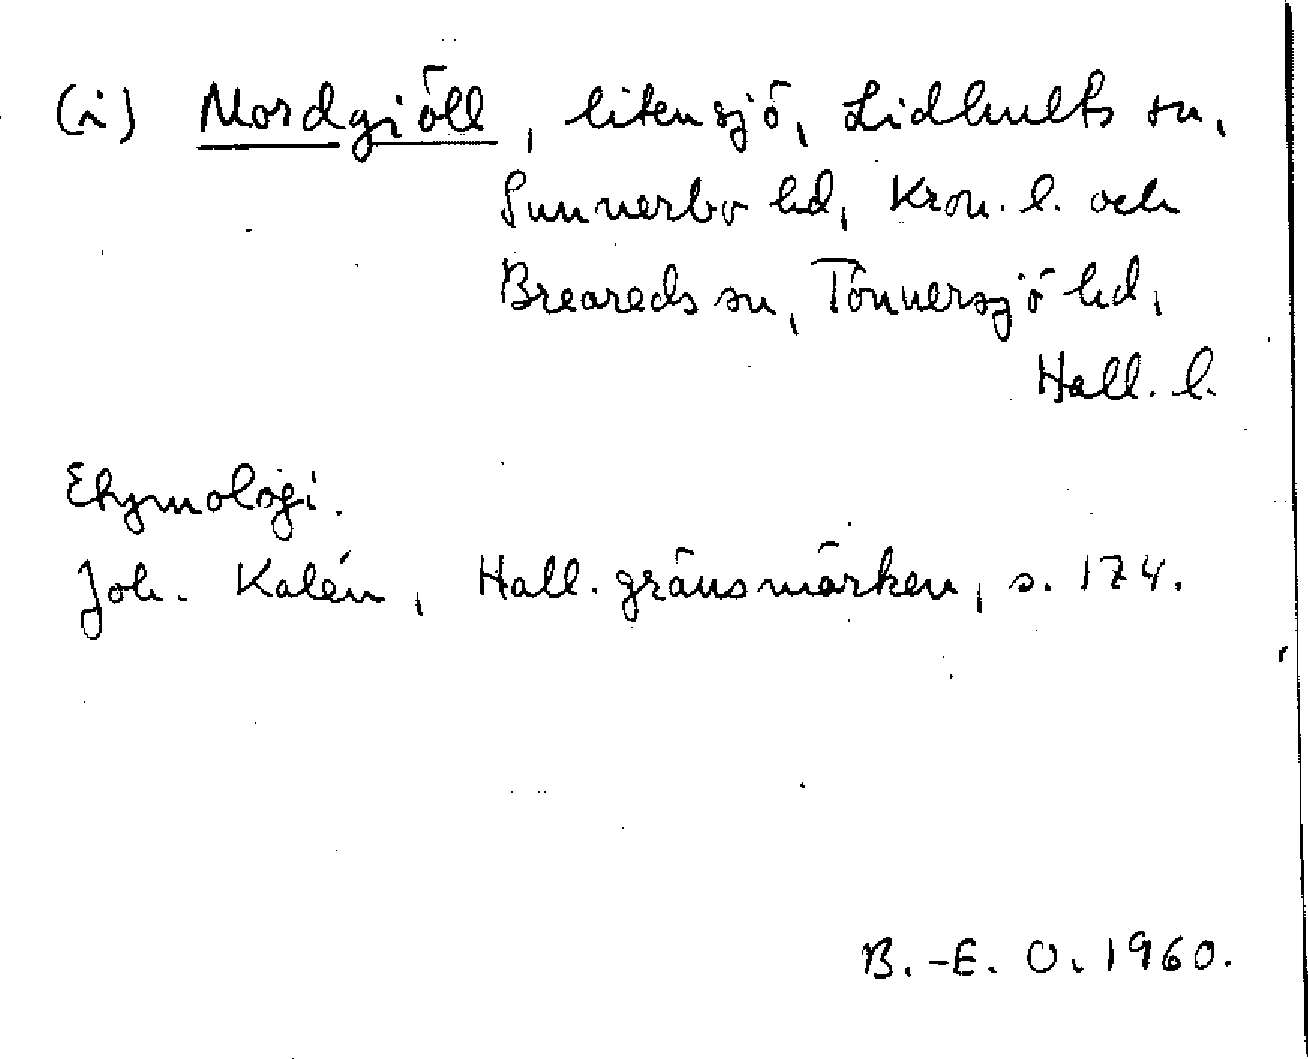 (i) Mordgiöll, liten sjö, Lidhults sn,
Sunnerbo hd, Kron. l. och
Breareds sn, Tönnersjö hd,
Hall. l.
Etymologi.
Joh. Kalén, Hall. gränsmärken, s. 174.
B.-E. O. 1960.